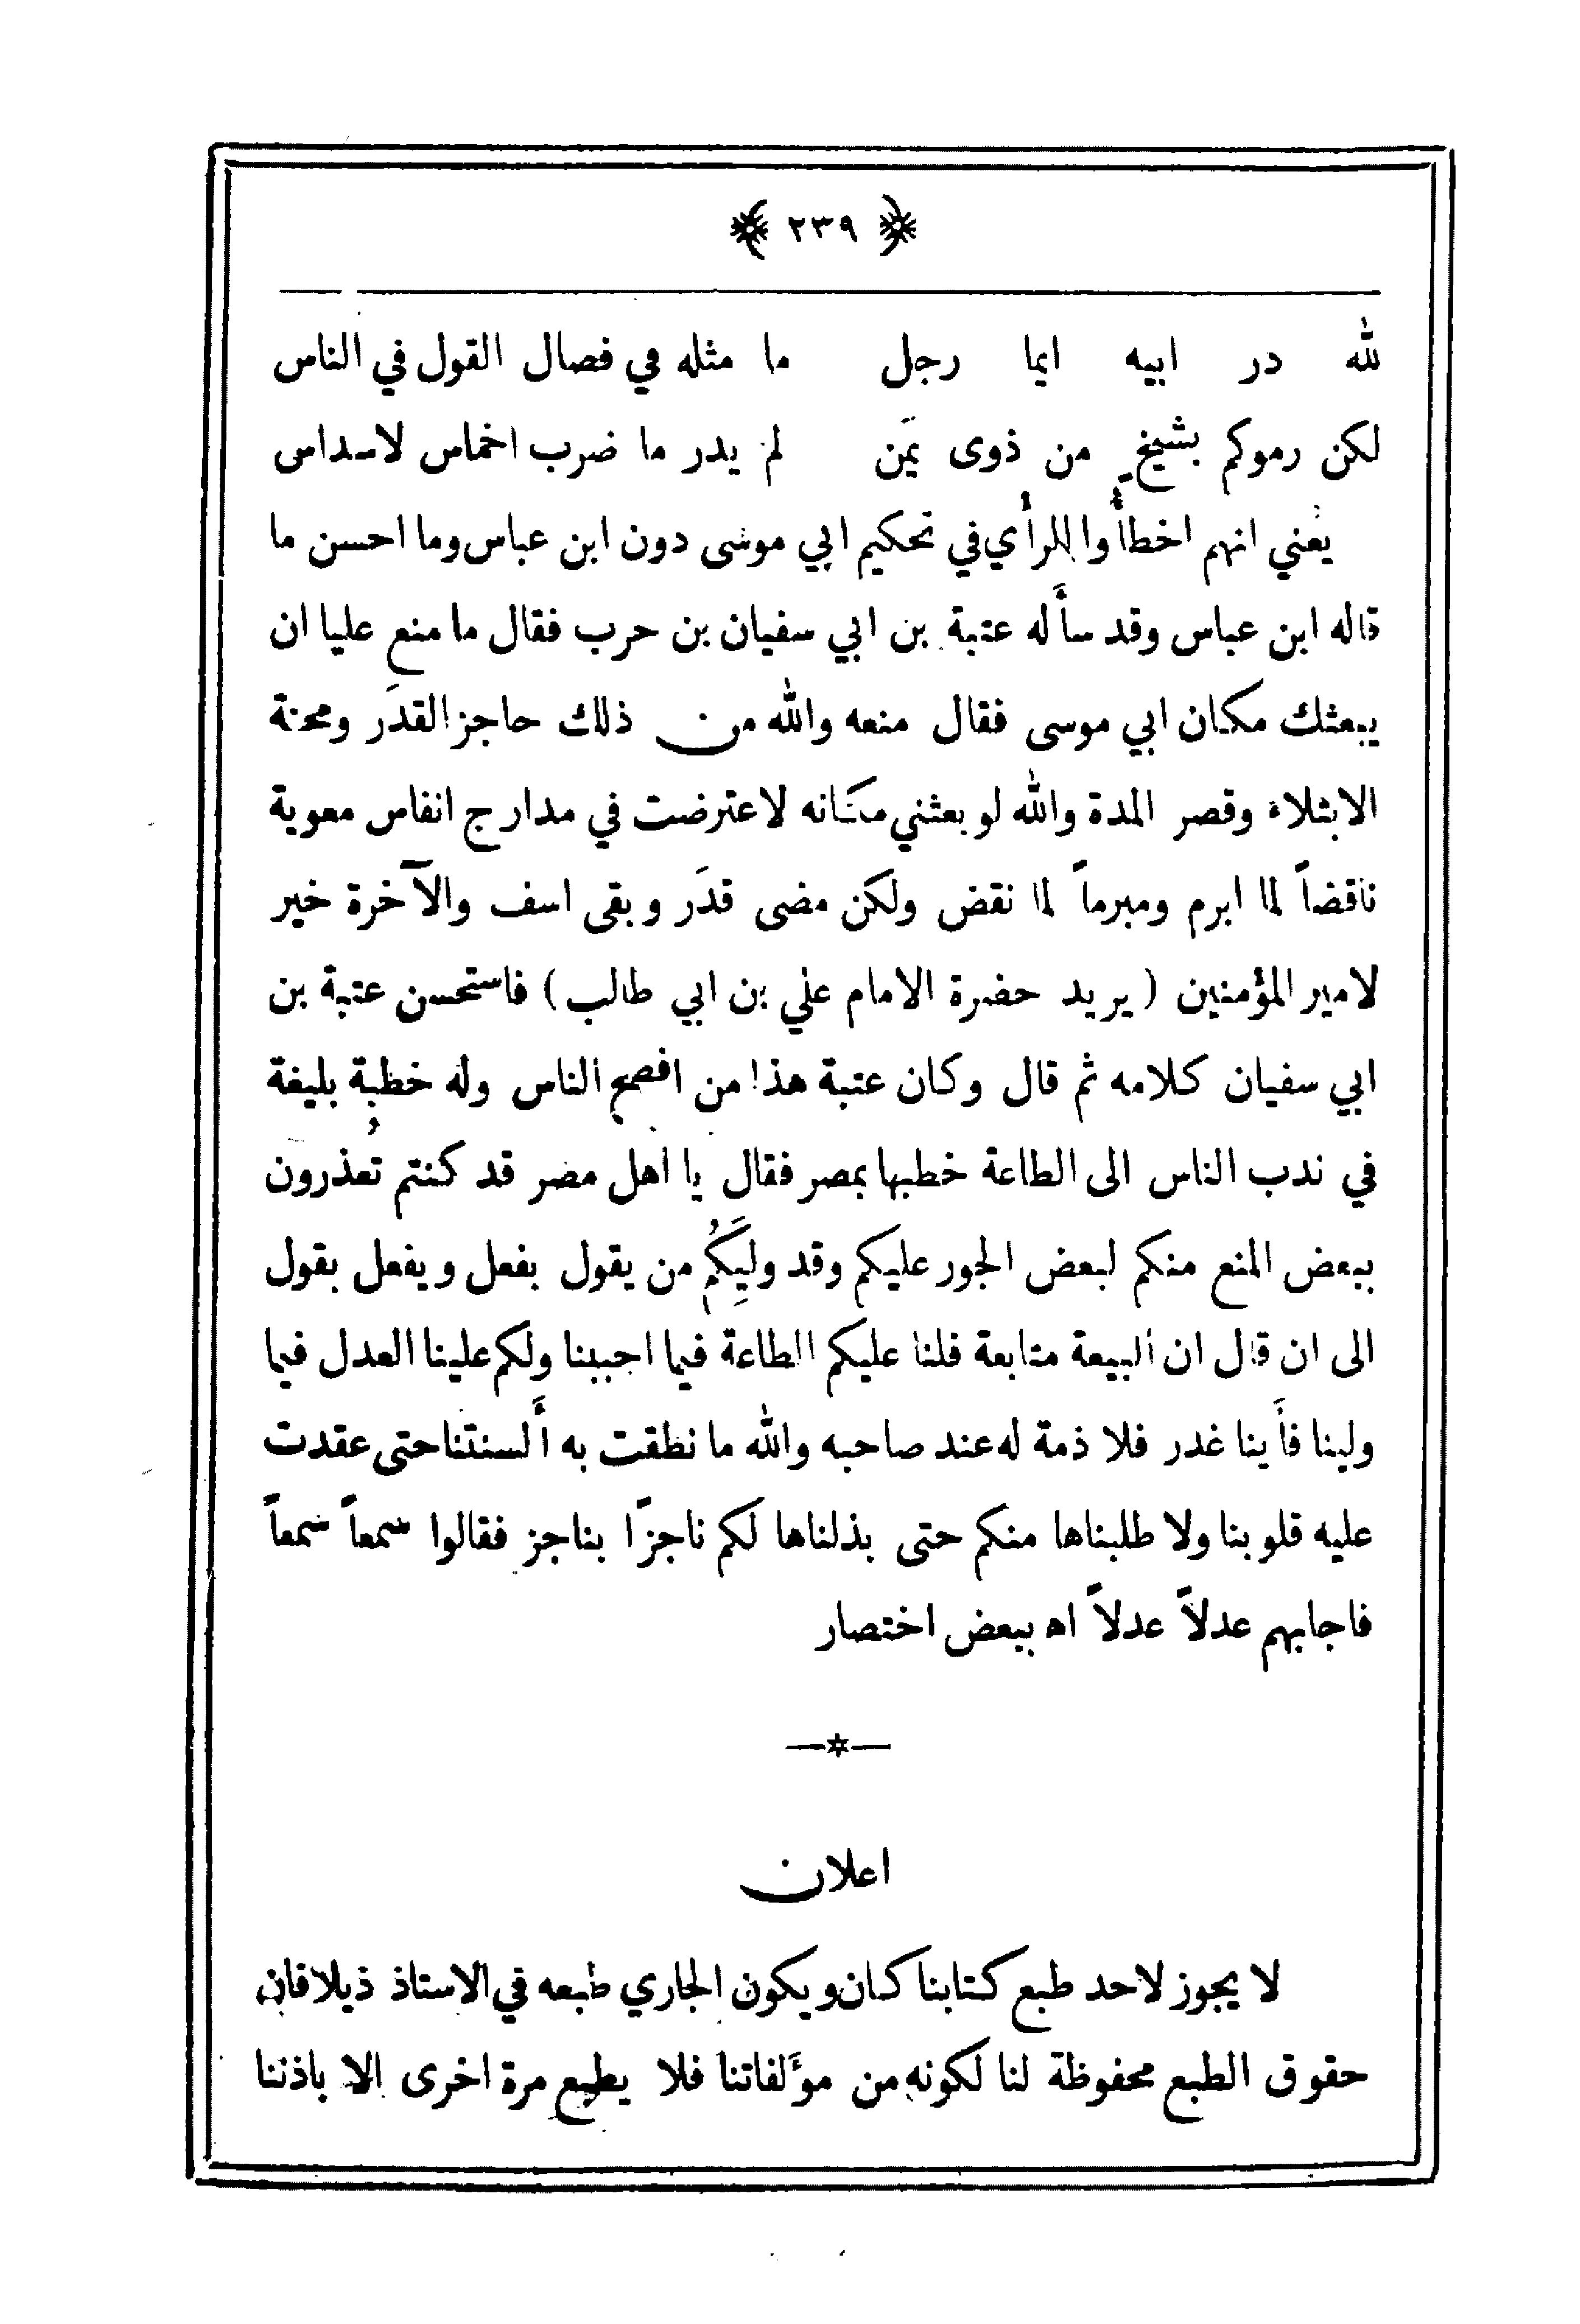 ﴿ ٢٣٩ ﴾
لله در ابيه ايما رجل ما مثله في فصال القول في الناس
لكن رموكم بشيخٍ من ذوى يَمن لم يدر ما ضرب اخماس لاسداس
يعني انهم اخطأُوا الرأي في تحكيم ابي موسى دون ابن عباس وما احسن ما
قاله ابن عباس وقد سأَله عتبة بن ابي سفيان بن حرب فقال ما منع عليا ان
يبعثك مكان ابي موسى فقال منعه والله من ذلك حاجز القدَر ومحنة
الابتلاء وقصر المدة والله لو بعثني مكانه لاعترضت في مدارج انفاس معوية
ناقضاً لما ابرم ومبرماً لما نقض ولكن مضى قدَر وبقى اسف والآخرة خير
لامير المؤمنين ( يريد حضرة الامام علي بن ابي طالب ) فاستحسن عتبة بن
ابي سفيان كلامه ثم قال وكان عتبة هذا من افصح الناس وله خطبة بليغة
في ندب الناس الى الطاعة خطبها بمصر فقال يا اهل مصر قد كنتم تُعذرون
ببعض المنع منكم لبعض الجور عليكم وقد وليَكُم من يقول بفعل ويفعل بقول
الى ان قال ان البيعة متابعة فلنا عليكم الطاعة فيما احببنا ولكم علينا العدل فيما
ولينا فأَينا غدر فلا ذمة له عند صاحبه والله ما نطقت به أَلسنتنا حتى عقدت
عليه قلوبنا ولا طلبناها منكم حتى بذلناها لكم ناجزًا بناجز فقالوا سمعاً سمعاً
فاجابهم عدلاً عدلاً اه ببعض اختصار
اعلان
لا يجوز لاحد طبع كتابنا كان ويكون الجاري طبعه في الاستاذ ذيلا فان
حقوق الطبع محفوظة لنا لكونه من مؤَلفاتنا فلا يطبع مرة اخرى الا باذننا